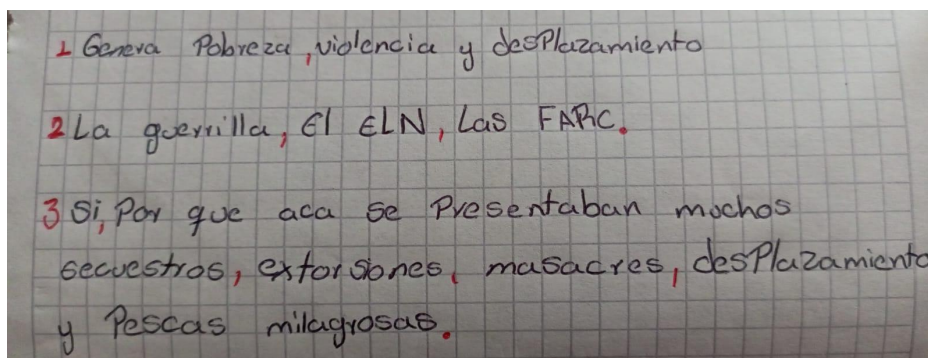 1 Genera Pobreza, violencia y desPlazamiento
2 La guerrilla, El ELN, Las FARC.
3 Si, Por que aca se Presentaban muchos
secuestros, extorsiones, masacres, desPlazamiento
y Pescas milagrosas.